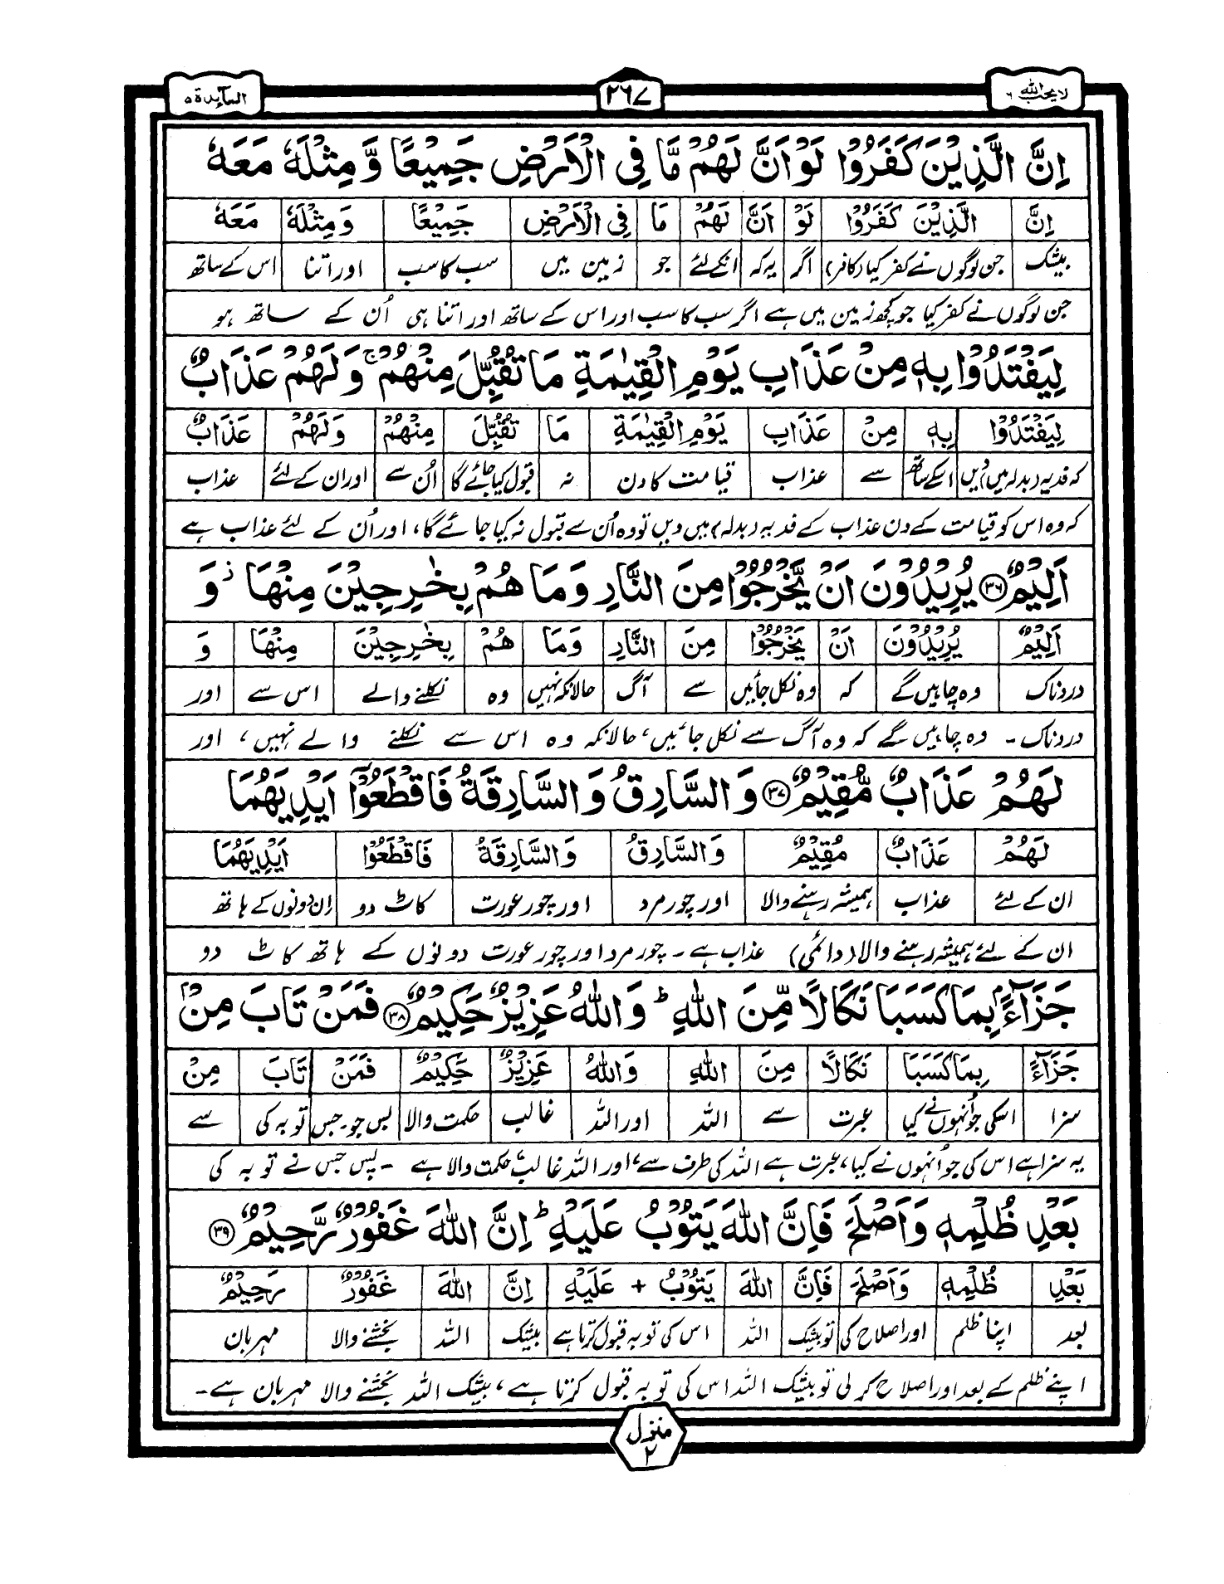 المآئدة ٥
٢٦٧
لا يحب الله ٦
اِنَّ الَّذِيْنَ كَفَرُوْا لَوْ اَنَّ لَهُمْ مَّا فِى الْاَرْضِ جَمِيْعًا وَّ مِثْلَهٗ مَعَهٗ
اِنَّ الَّذِيْنَ كَفَرُوْا لَوْ اَنَّ لَهُمْ مَا فِى الْاَرْضِ جَمِيْعًا وَمِثْلَهٗ مَعَهٗ
بیشک جن لوگوں نے کفر کیا (کافر) اگر یہ کہ انکے لئے جو زمین میں سب کا سب اور اتنا اس کے ساتھ
جن لوگوں نے کفر کیا جو کچھ زمین میں ہے اگر سب کا سب اور اس کے ساتھ اور اتنا ہی اُن کے ساتھ ہو
لِيَفْتَدُوْا بِهٖ مِنْ عَذَابِ يَوْمِ الْقِيٰمَةِ مَا تُقُبِّلَ مِنْهُمْ ۚ وَلَهُمْ عَذَابٌ
لِيَفْتَدُوْا بِهٖ مِنْ عَذَابِ يَوْمِ الْقِيٰمَةِ مَا تُقُبِّلَ مِنْهُمْ وَلَهُمْ عَذَابٌ
کہ فدیہ (بدلہ میں) دیں اسکے ساتھ سے عذاب قیامت کا دن نہ قبول کیا جائے گا اُن سے اور ان کے لئے عذاب
کہ وہ اس کو قیامت کے دن عذاب کے فدیہ (بدلہ) میں دیں تو وہ اُن سے قبول نہ کیا جائے گا، اور اُن کے لئے عذاب ہے
اَلِيْمٌ ﴿٣٦﴾ يُرِيْدُوْنَ اَنْ يَّخْرُجُوْا مِنَ النَّارِ وَمَا هُمْ بِخٰرِجِيْنَ مِنْهَا ۡ وَ
اَلِيْمٌ يُرِيْدُوْنَ اَنْ يَخْرُجُوْا مِنَ النَّارِ وَمَا هُمْ بِخٰرِجِيْنَ مِنْهَا وَ
دردناک وہ چاہیں گے کہ وہ نکل جائیں سے آگ حالانکہ نہیں وہ نکلنے والے اس سے اور
دردناک ۔ وہ چاہیں گے کہ وہ آگ سے نکل جائیں، حالانکہ وہ اس سے نکلنے والے نہیں، اور
لَهُمْ عَذَابٌ مُّقِيْمٌ ﴿٣٧﴾ وَالسَّارِقُ وَالسَّارِقَةُ فَاقْطَعُوْٓا اَيْدِيَهُمَا
لَهُمْ عَذَابٌ مُقِيْمٌ وَالسَّارِقُ وَالسَّارِقَةُ فَاقْطَعُوْٓا اَيْدِيَهُمَا
ان کے لئے عذاب ہمیشہ رہنے والا اور چور مرد اور چور عورت کاٹ دو ان دونوں کے ہاتھ
ان کے لئے ہمیشہ رہنے والا (دائمی) عذاب ہے ۔ چور مرد اور چور عورت دونوں کے ہاتھ کاٹ دو
جَزَآءًۢ بِمَا كَسَبَا نَكَالًا مِّنَ اللّٰهِ ؕ وَاللّٰهُ عَزِيْزٌ حَكِيْمٌ ﴿٣٨﴾ فَمَنْ تَابَ مِنْۢ
جَزَآءً بِمَا كَسَبَا نَكَالًا مِنَ اللّٰهِ وَاللّٰهُ عَزِيْزٌ حَكِيْمٌ فَمَنْ تَابَ مِنْ
سزا اسکی جو اُنہوں نے کیا عبرت سے اللہ اور اللہ غالب حکمت والا پس جو۔ جس توبہ کی سے
یہ سزا ہے اس کی جو اُنہوں نے کیا، عبرت ہے اللہ کی طرف سے، اور اللہ غالب حکمت والا ہے ۔ پس جس نے توبہ کی
بَعْدِ ظُلْمِهٖ وَاَصْلَحَ فَاِنَّ اللّٰهَ يَتُوْبُ عَلَيْهِ ؕ اِنَّ اللّٰهَ غَفُوْرٌ رَّحِيْمٌ ﴿٣٩﴾
بَعْدِ ظُلْمِهٖ وَاَصْلَحَ فَاِنَّ اللّٰهَ يَتُوْبُ + عَلَيْهِ اِنَّ اللّٰهَ غَفُوْرٌ رَحِيْمٌ
بعد اپنا ظلم اور اصلاح کی تو بیشک اللہ اس کی توبہ قبول کرتا ہے بیشک اللہ بخشنے والا مہربان
اپنے ظلم کے بعد اور اصلاح کر لی تو بیشک اللہ اس کی توبہ قبول کرتا ہے، بیشک اللہ بخشنے والا مہربان ہے ۔
منزل ٢